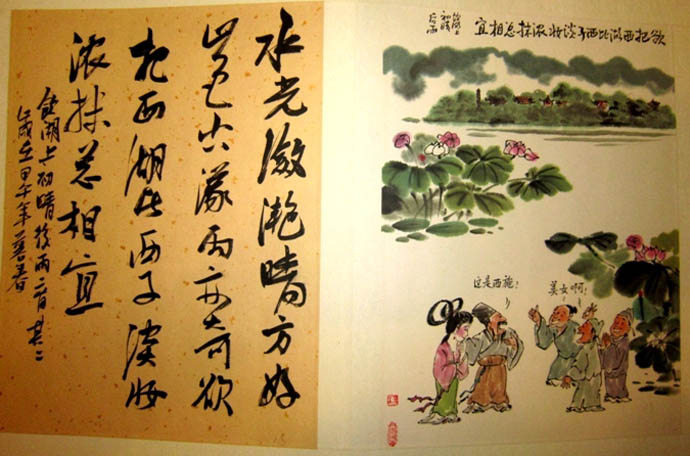 水光潋滟晴方好
山色空濛雨亦奇欲
把西湖比西子淡妆
浓抹总相宜
饮湖上初晴後雨二首其二
岁在甲午年暮春
欲把西湖比西子淡妆浓抹总相宜
饮湖上
初晴
后雨
这是西施!
美女啊!